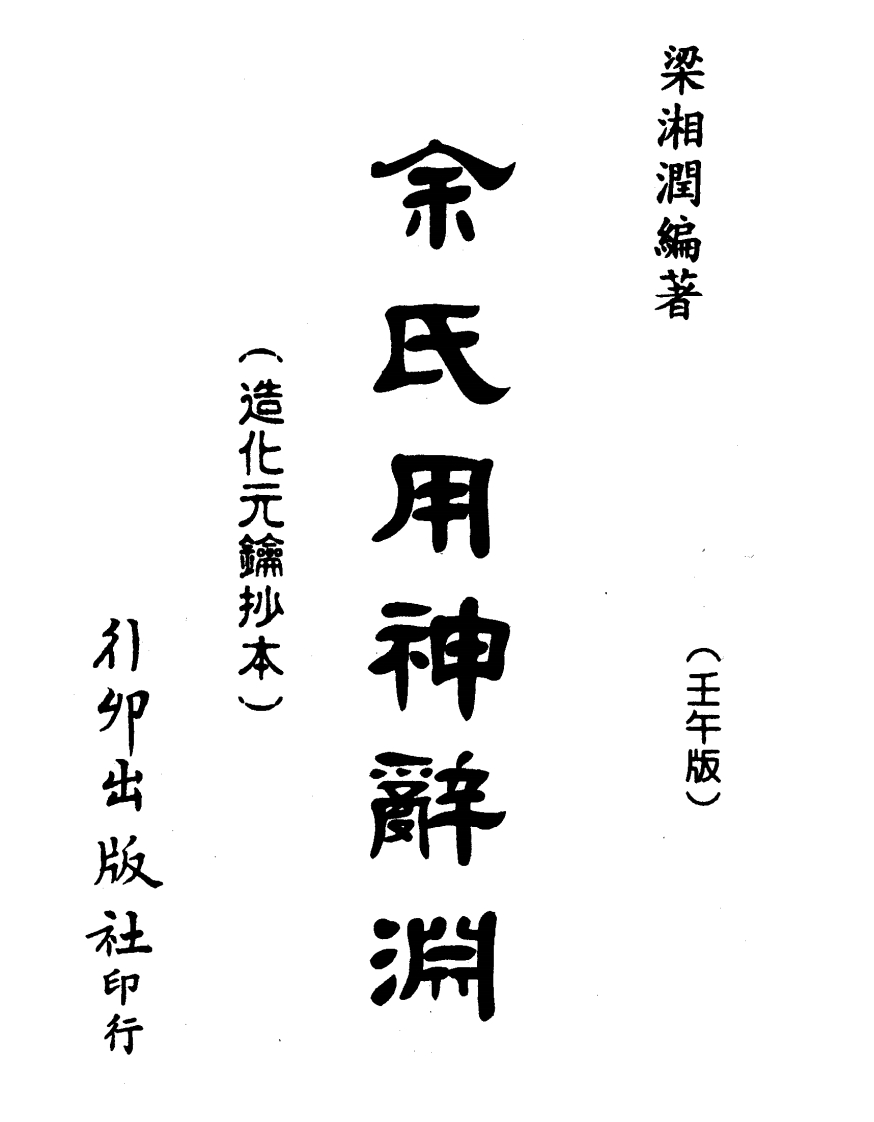 梁湘潤編著
(壬午版)
余氏用神辭淵
(造化元鑰抄本)
行卯出版社印行